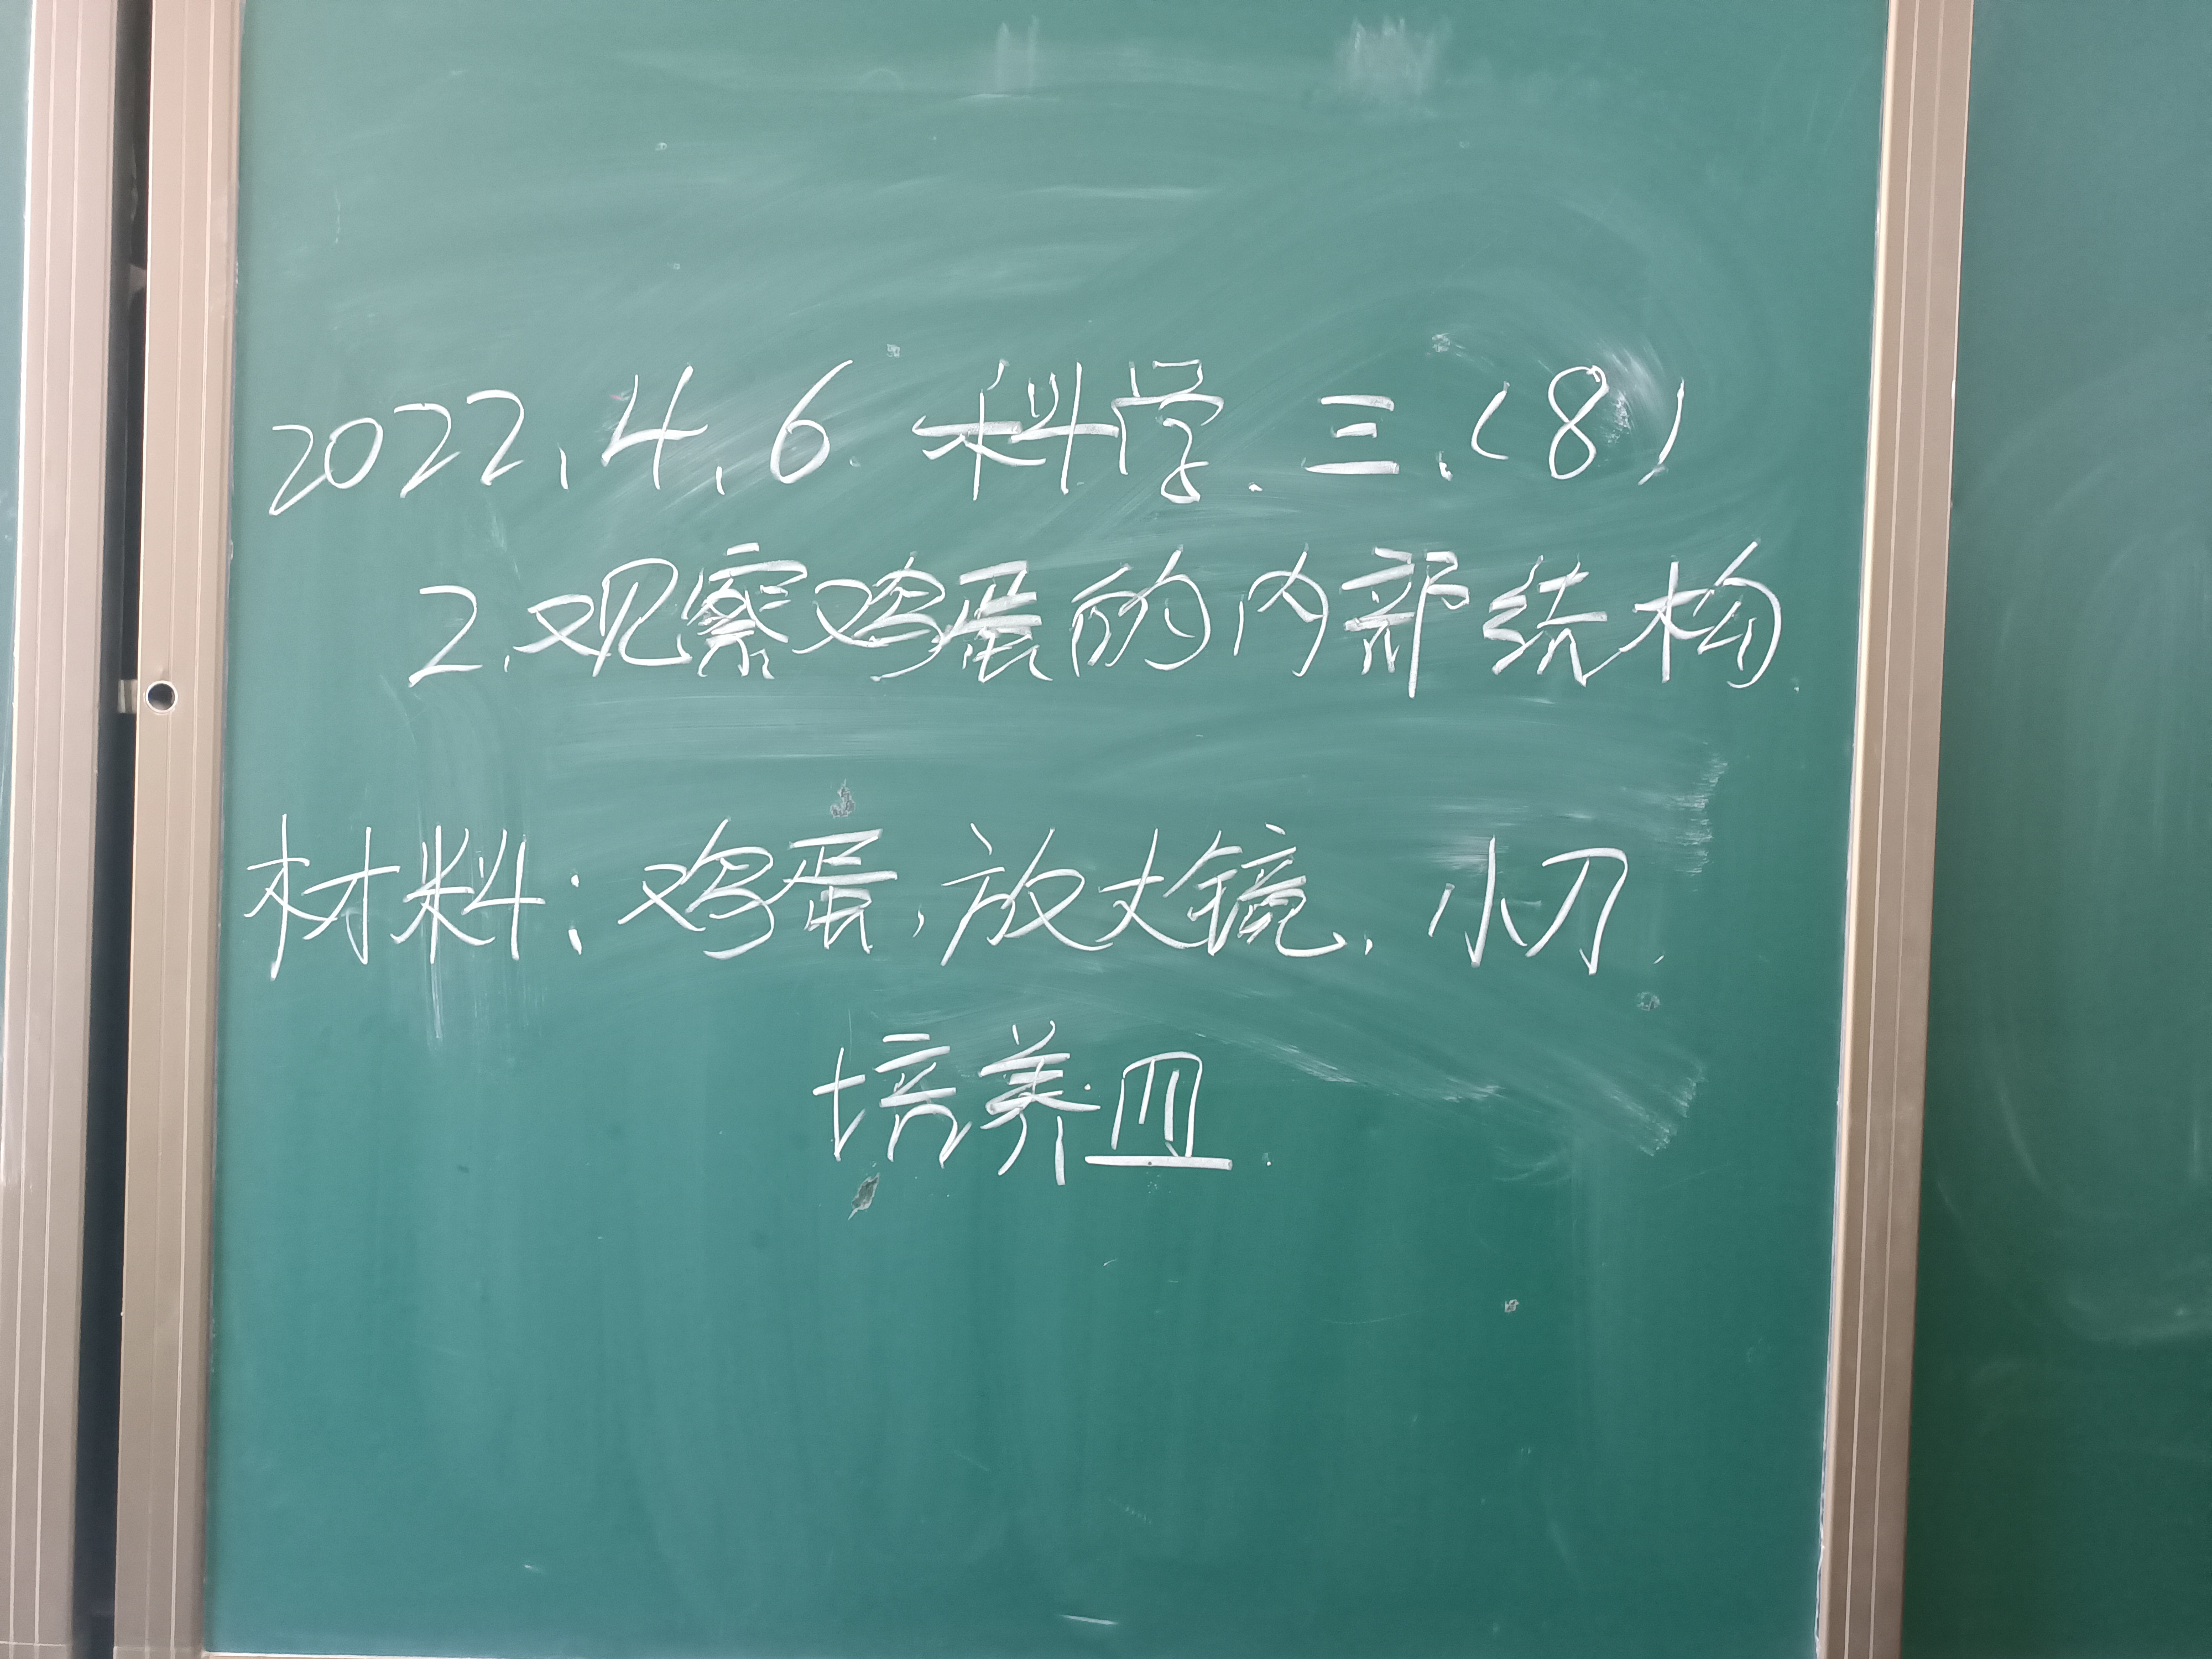 2022.4.6.科学.三.(8)
2.观察鸡蛋的内部结构.
材料:鸡蛋,放大镜,小刀.
培养皿.